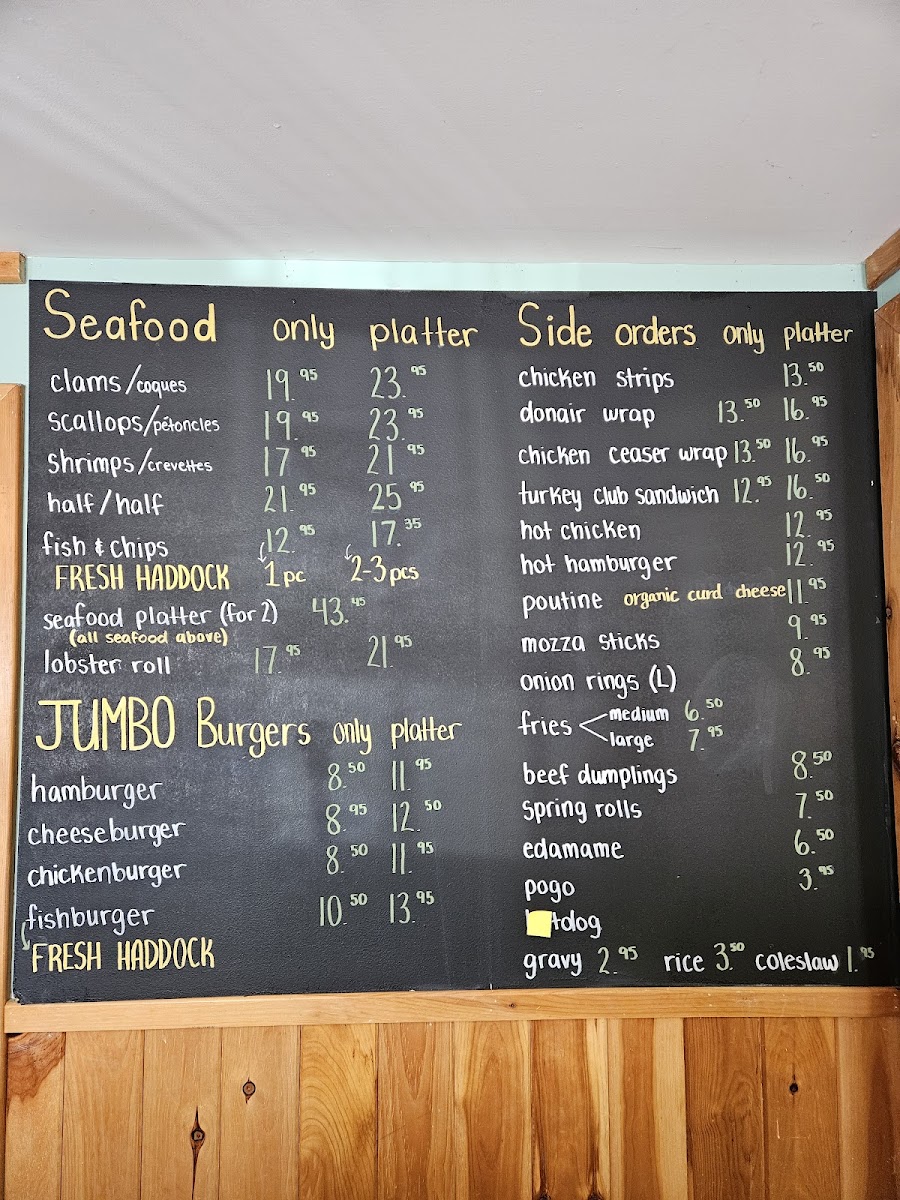 Seafood only platter
clams/coques 19.95 23.95
scallops/pétoncles 19.95 23.95
shrimps/crevettes 17.95 21.95
half/half 21.95 25.95
fish & chips 12.95 17.35
FRESH HADDOCK 1 pc 2-3 pcs
seafood platter (for 2) 43.45
(all seafood above)
lobster roll 17.95 21.95
JUMBO Burgers only platter
hamburger 8.50 11.95
cheeseburger 8.95 12.50
chickenburger 8.50 11.95
fishburger 10.50 13.95
FRESH HADDOCK
Side orders only platter
chicken strips 13.50
donair wrap 13.50 16.95
chicken ceaser wrap 13.50 16.95
turkey club sandwich 12.95 16.50
hot chicken 12.95
hot hamburger 12.95
poutine organic curd cheese 11.95
mozza sticks 9.95
onion rings (L) 8.95
fries medium 6.50
large 7.95
beef dumplings 8.50
spring rolls 7.50
edamame 6.50
pogo 3.95
tdog
gravy 2.95 rice 3.50 coleslaw 1.95